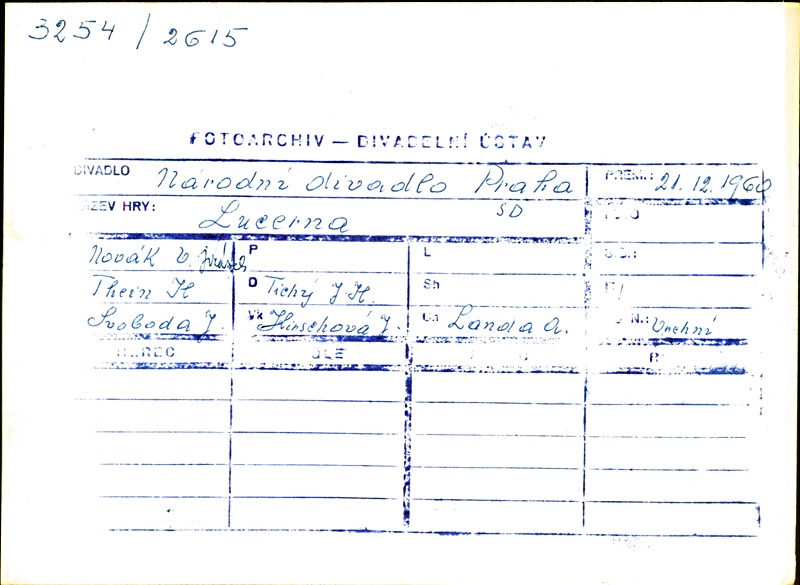 3254 / 2615
FOTOARCHIV — DIVADELNÍ ÚSTAV
DIVADLO Národní divadlo Praha PREM.: 21.12.1960
ÁZEV HRY: Lucerna SD
Novák V. Jirásek P L
Thein H D Tichý J.H. Sh
Svoboda J. Vk Hirschová J. Ch Landa A. N.: Vrchní